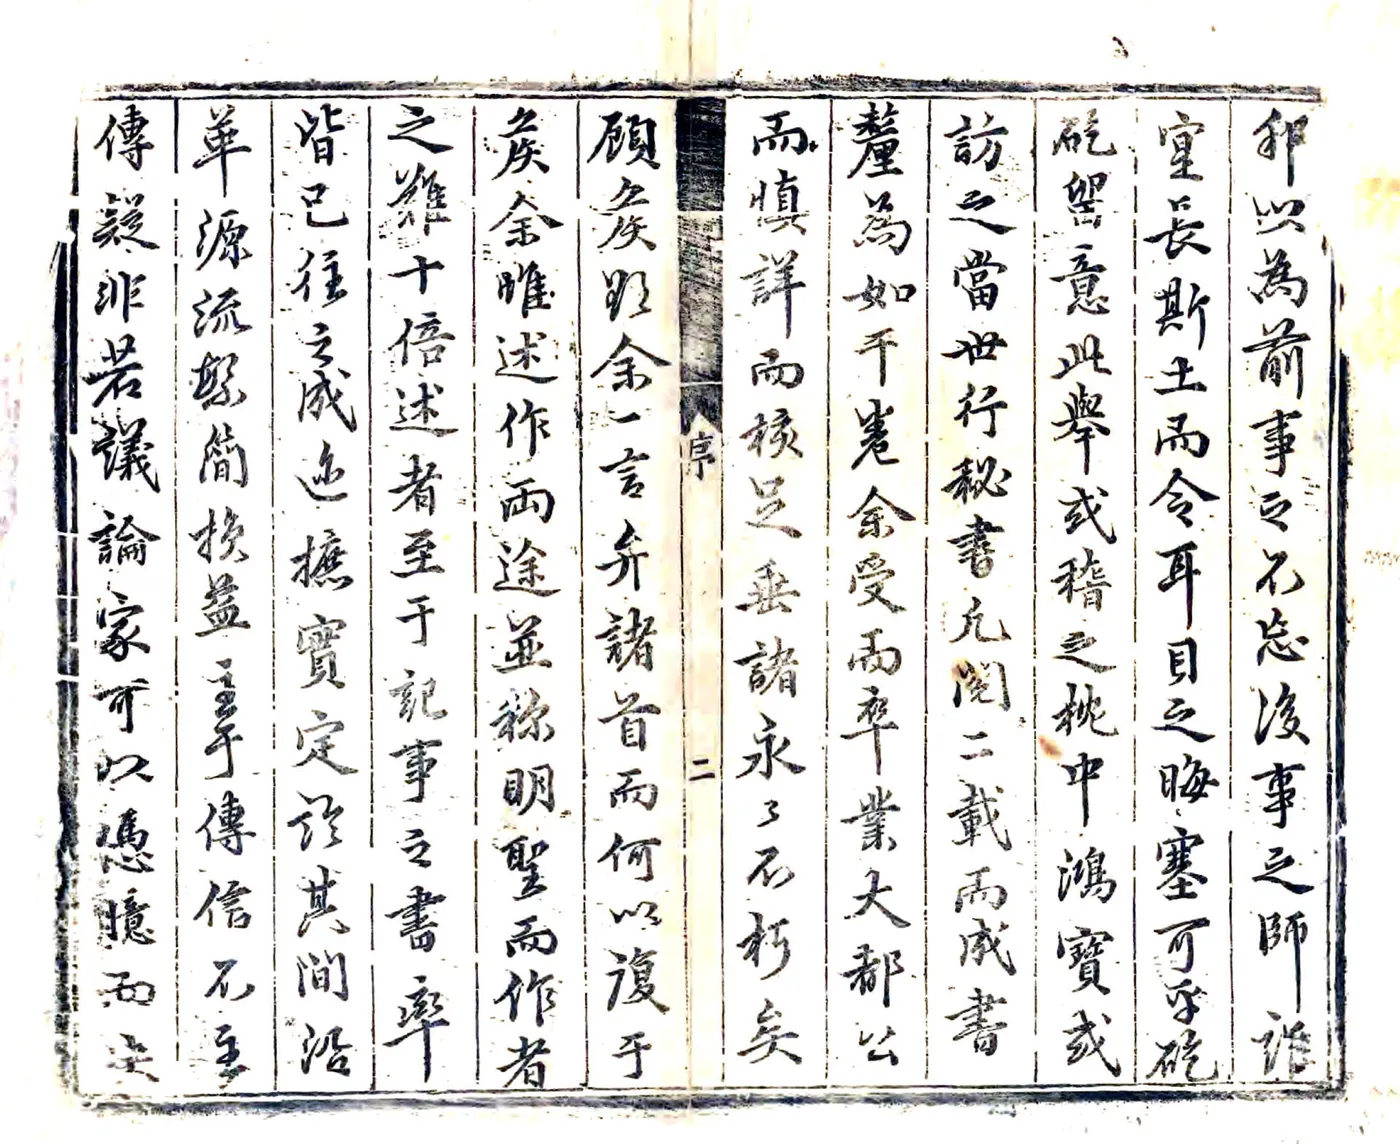 耶以為前事之不忘後事之師誰
寔長斯土而令耳目之晦塞可乎矻
矻留意此舉或稽之枕中鴻寶或
訪之當世行秘書凡閱二載而成書
釐為如干卷余受而卒業大都公
而慎詳而核足垂諸永永不朽矣
序
二
顧矦以余一言弁諸首而何以復于
矦余惟述作兩途並稱明聖而作者
之難十倍述者至于記事之書率
皆已往之成迹摭實定於其間沿
革源流繁簡損益主于傳信不主
傳疑非若議論家可以憑臆而